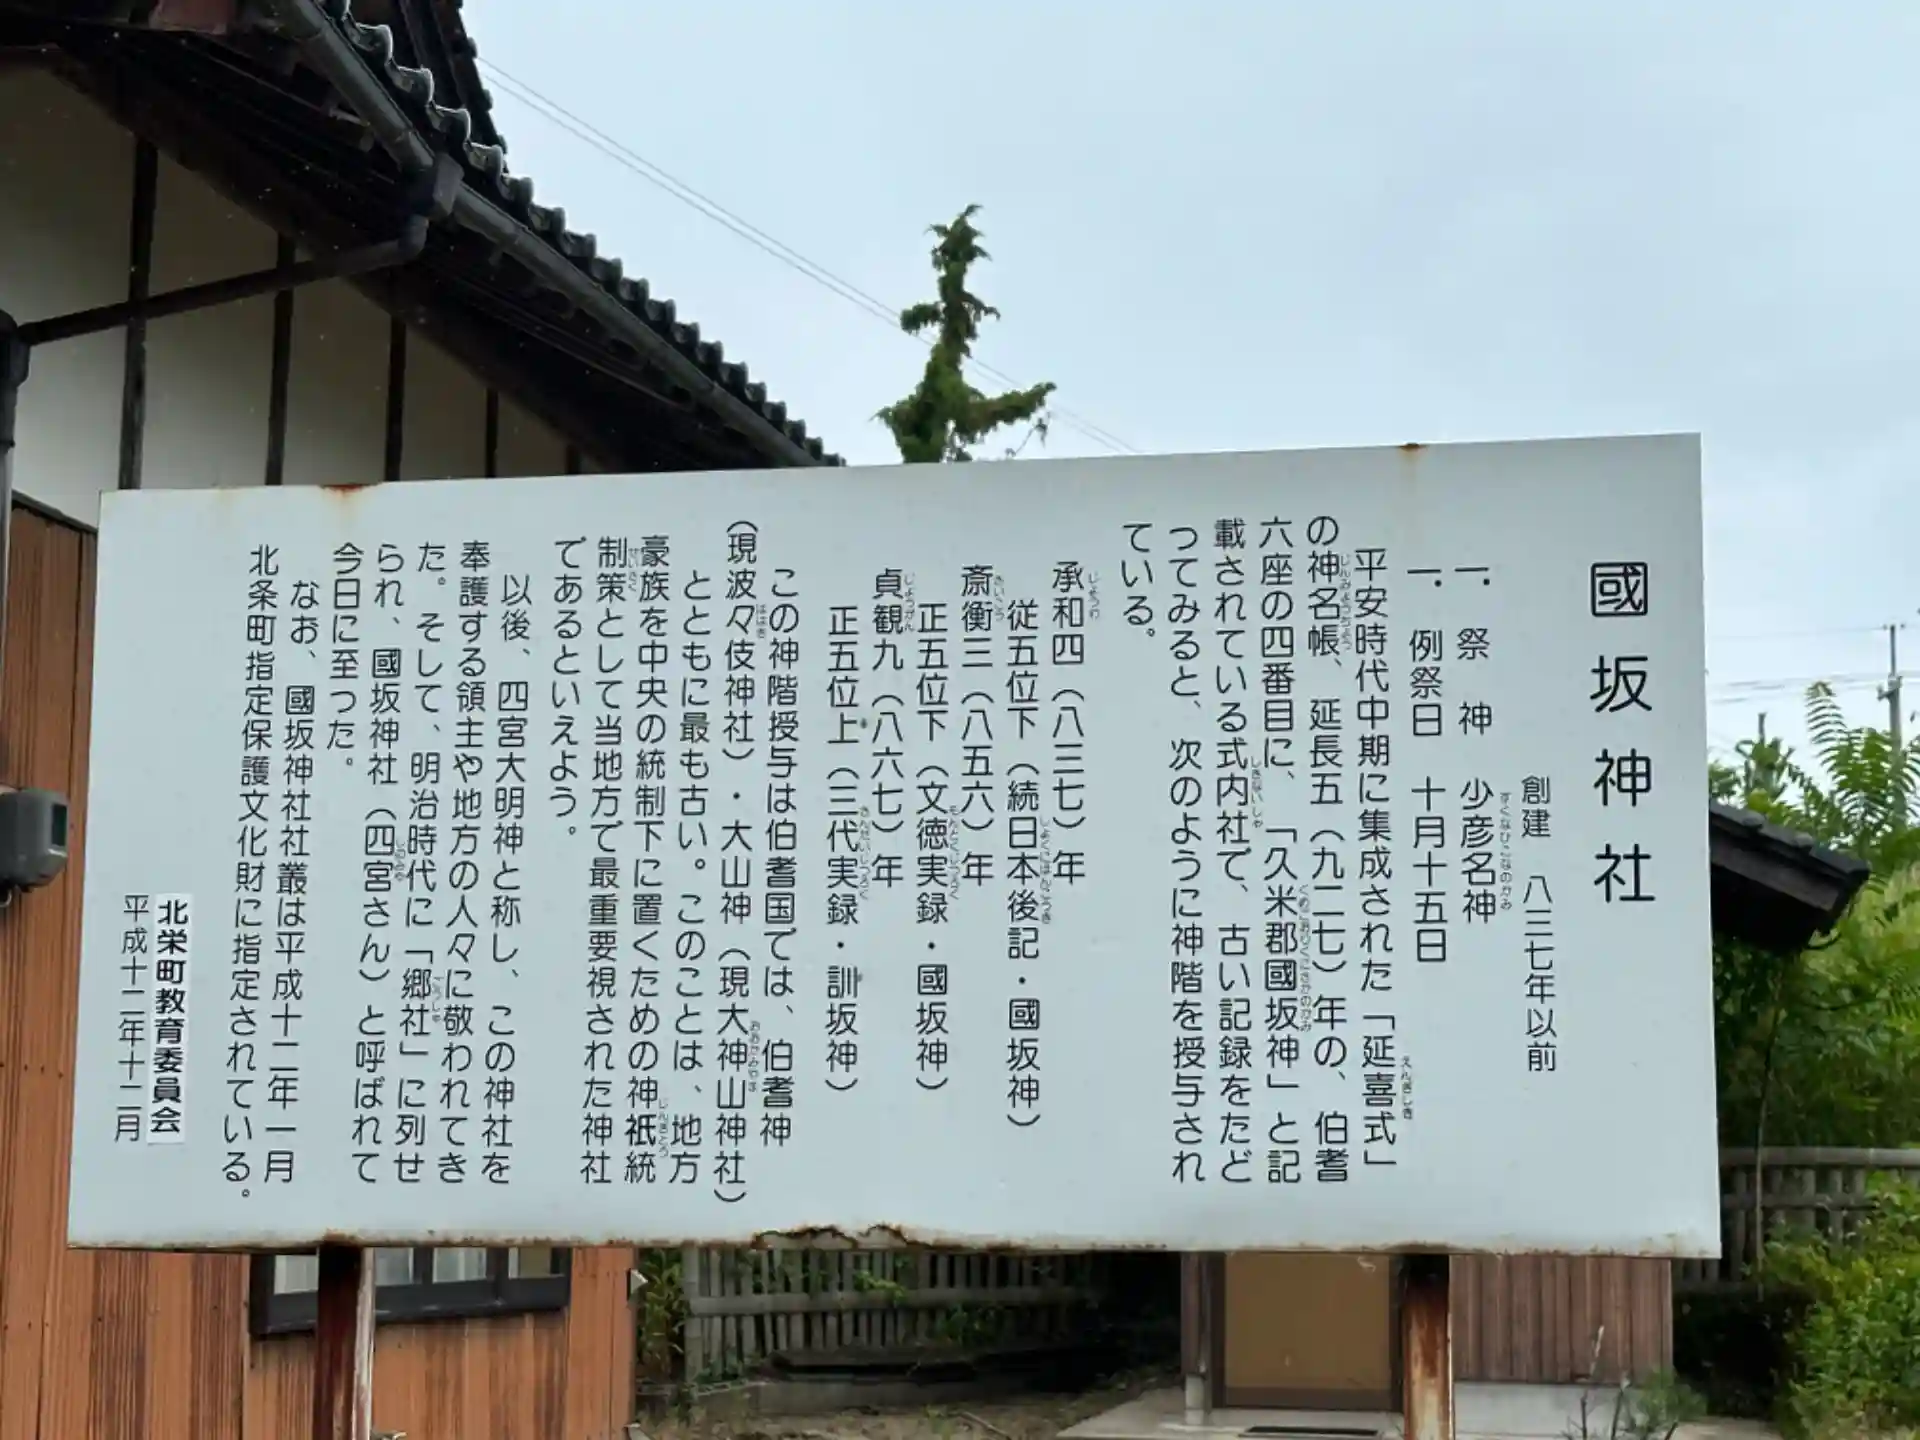 國坂神社
創建 八三七年以前
一. 祭 神 少彦名神
一. 例祭日 十月十五日
平安時代中期に集成された「延喜式」
の神名帳、延長五（九二七）年の、伯耆
六座の四番目に、「久米郡國坂神」と記
載されている式内社で、古い記録をたど
ってみると、次のように神階を授与され
ている。
承和四（八三七）年
従五位下（続日本後記・國坂神）
斎衡三（八五六）年
正五位下（文徳実録・國坂神）
貞観九（八六七）年
正五位上（三代実録・訓坂神）
この神階授与は伯耆国では、伯耆神
（現波々伎神社）・大山神（現大神山神社）
とともに最も古い。このことは、地方
豪族を中央の統制下に置くための神祇統
制策として当地方で最重要視された神社
であるといえよう。
以後、四宮大明神と称し、この神社を
奉護する領主や地方の人々に敬われてき
た。そして、明治時代に「郷社」に列せ
られ、國坂神社（四宮さん）と呼ばれて
今日に至った。
なお、國坂神社社叢は平成十二年一月
北条町指定保護文化財に指定されている。
北栄町教育委員会
平成十二年十二月